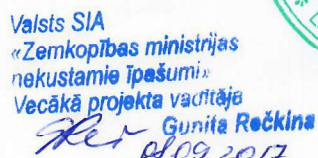 Valsts SIA
«Zemkopības ministrijas
nekustamie īpašumi»
Vecākā projekta vadītāja
Gunita Rečkina
01.09.2017